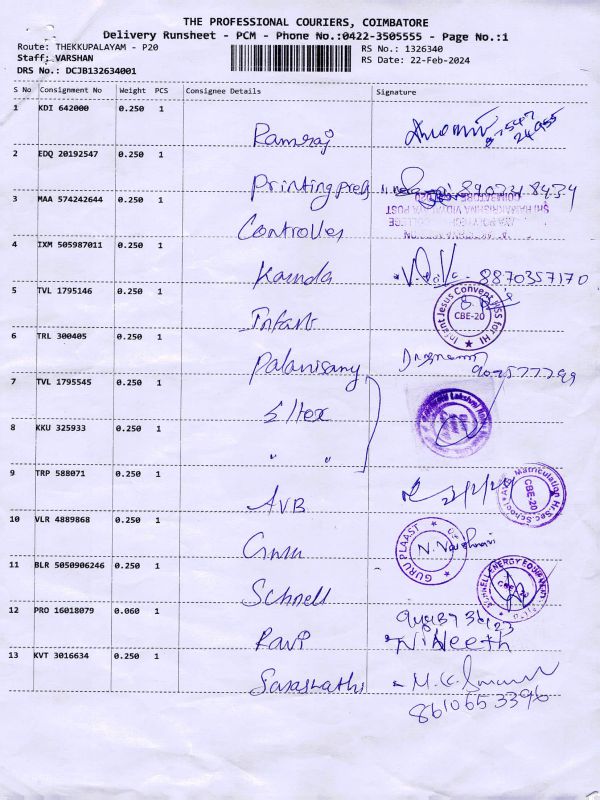 THE PROFESSIONAL COURIERS, COIMBATORE
Delivery Runsheet - PCM - Phone No.:0422-3505555 - Page No.:1
Route: THEKKUPALAYAM - P20 RS No.: 1326340
Staff: VARSHAN RS Date: 22-Feb-2024
DRS No.: DCJB132634001
S No Consignment No Weight PCS Consignee Details Signature
1 KDI 642000 0.250 1
Ramraj
2 EDQ 20192547 0.250 1
Printing press
3 MAA 574242644 0.250 1
Controller
4 IXM 505987011 0.250 1
Kamda 8870357170
5 TVL 1795146 0.250 1
Infant Infant Jesus Convent HSS for HI CBE-20
6 TRL 300405 0.250 1
Palanisamy
7 TVL 1795545 0.250 1
Eltex
8 KKU 325933 0.250 1
" "
9 TRP 588071 0.250 1
AVB 22/2/24 Matriculation Hr.Sec.School CBE-20
10 VLR 4889868 0.250 1
Guru GURU PLAAST
11 BLR 5050906246 0.250 1
Schnell
12 PRO 16018079 0.060 1
Ravi Nineeth
13 KVT 3016634 0.250 1
Saraswathi
8610653396